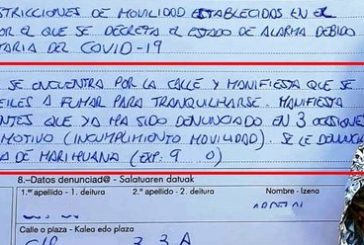 STRICCIONES DE MOVILIDAD ESTABLECIDAS EN EL
POR EL QUE SE DECRETA EL ESTADO DE ALARMA DEBIDO
TARIA DEL COVID-19
SE ENCUENTRA POR LA CALLE Y MANIFIESTA QUE SE
A FUMAR PARA TRANQUILIZARSE. MANIFIESTA
NTES QUE YA HA SIDO DENUNCIADO EN 3 OCASIONES
MOTIVO (INCUMPLIMIENTO MOVILIDAD). SE LE
DE MARIHUANA (EXP: 9 0)
8.-Datos denunciad@ - Salatuaren datuak
1.º apellido - 1. deitura 2.º apellido - 2. deitura Nombre - Izena
Calle o plaza - Kalea edo plaza
3 3 A